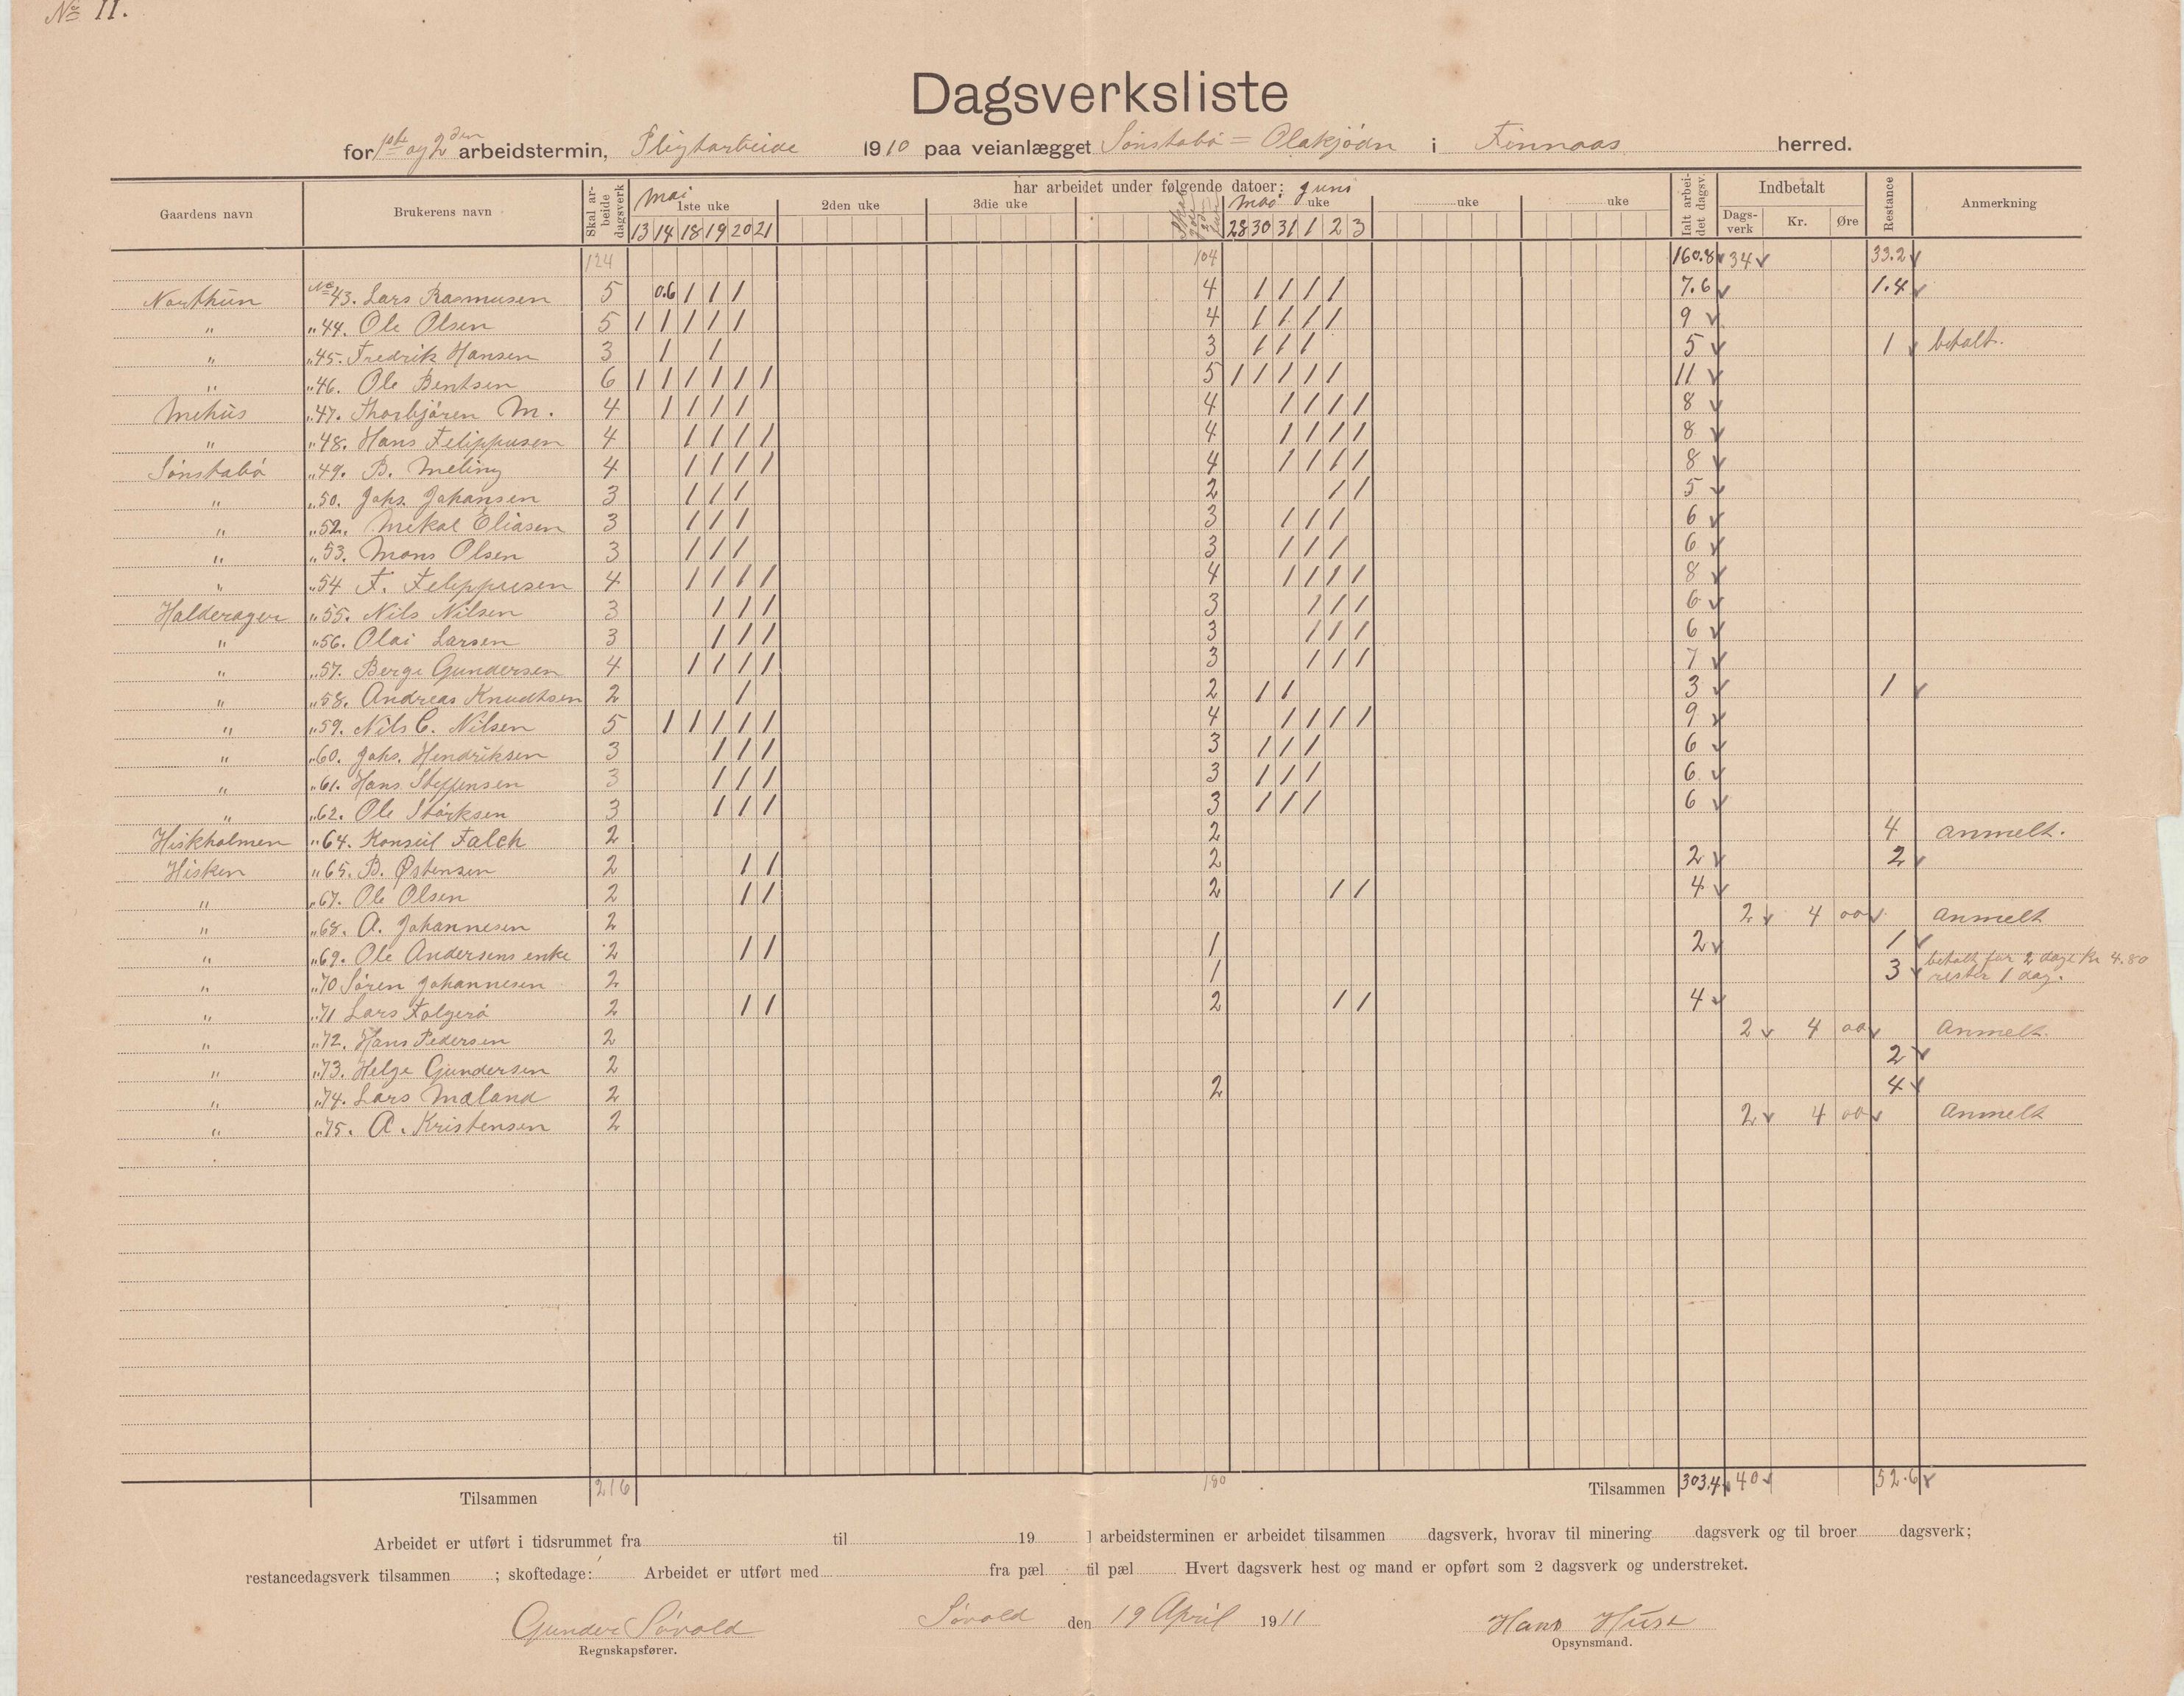 No 11.
Dagsverksliste
for 1ste og 2den arbeidstermin, Pligtarbeide 1910 paa veianlægget Sønstabø = Olakjødn i Finnaas herred.
Gaardens navn Brukerens navn Skal arbeide dagsverk har arbeidet under følgende datoer: Juni Ialt arbeidet dagsv. Indbetalt Restance Anmerkning
Mai 1ste uke 2den uke 3die uke Mai uke uke uke Dagsverk Kr. Øre
13 14 18 19 20 21 28 30 31 1 2 3
124 104 160.8 34 33.2
Northun No 43. Lars Rasmusen 5 0.6 1 1 1 4 1 1 1 1 7.6 1.4
" " 44. Ole Olsen 5 1 1 1 1 1 4 1 1 1 1 9
" " 45. Fredrik Hansen 3 1 1 3 1 1 1 5 1 betalt.
" " 46. Ole Bentsen 6 1 1 1 1 1 1 5 1 1 1 1 1 11
Mehus " 47. Thorbjøren M. 4 1 1 1 1 4 1 1 1 1 8
" " 48. Hans Felippusen 4 1 1 1 1 4 1 1 1 1 8
Sønstabø " 49. B. Meling 4 1 1 1 1 4 1 1 1 1 8
" " 50. Johs. Johansen 3 1 1 1 2 1 1 5
" " 52. Mikal Eliasen 3 1 1 1 3 1 1 1 6
" " 53. Mons Olsen 3 1 1 1 3 1 1 1 6
" " 54 F. Felippusen 4 1 1 1 1 4 1 1 1 1 8
Halderager " 55. Nils Nilsen 3 1 1 1 3 1 1 1 6
" " 56. Olai Larsen 3 1 1 1 3 1 1 1 6
" " 57. Berge Gundersen 4 1 1 1 1 3 1 1 1 7
" " 58. Andreas Knudtsen 2 1 2 1 1 3 1
" " 59. Nils C. Nilsen 5 1 1 1 1 1 4 1 1 1 1 9
" " 60. Johs. Hendriksen 3 1 1 1 3 1 1 1 6
" " 61. Hans Steffensen 3 1 1 1 3 1 1 1 6
" " 62. Ole Størksen 3 1 1 1 3 1 1 1 6
Hiskholmen " 64. Konseil Falch 2 2 4 anmelt.
Hisken " 65. B. Østensen 2 1 1 2 2 2
" " 67. Ole Olsen 2 1 1 2 1 1 4
" " 68. A. Johannesen 2 2 4 00 anmelt
" " 69. Ole Andersens enke 2 1 1 1 2 1
" " 70 Søren Johannesen 2 1 3 betalt for 2 dage Kr 4.80 rester 1 dag.
" " 71 Lars Folgerø 2 1 1 2 1 1 4
" " 72. Hans Pedersen 2 2 4 00 Anmelt.
" " 73. Helge Gundersen 2 2
" " 74. Lars Mæland 2 2 4
" " 75. A. Kristensen 2 2 4 00 Anmelt
Tilsammen 216 180 Tilsammen 303.4 40 52.6
Arbeidet er utført i tidsrummet fra til 19 I arbeidsterminen er arbeidet tilsammen dagsverk, hvorav til minering dagsverk og til broer dagsverk;
restancedagsverk tilsammen ; skoftedage: Arbeidet er utført med fra pæl til pæl Hvert dagsverk hest og mand er opført som 2 dagsverk og understreket.
Gunder Søvold Søvold den 19 April 1911 Hans Hust
Regnskapsfører. Opsynsmand.